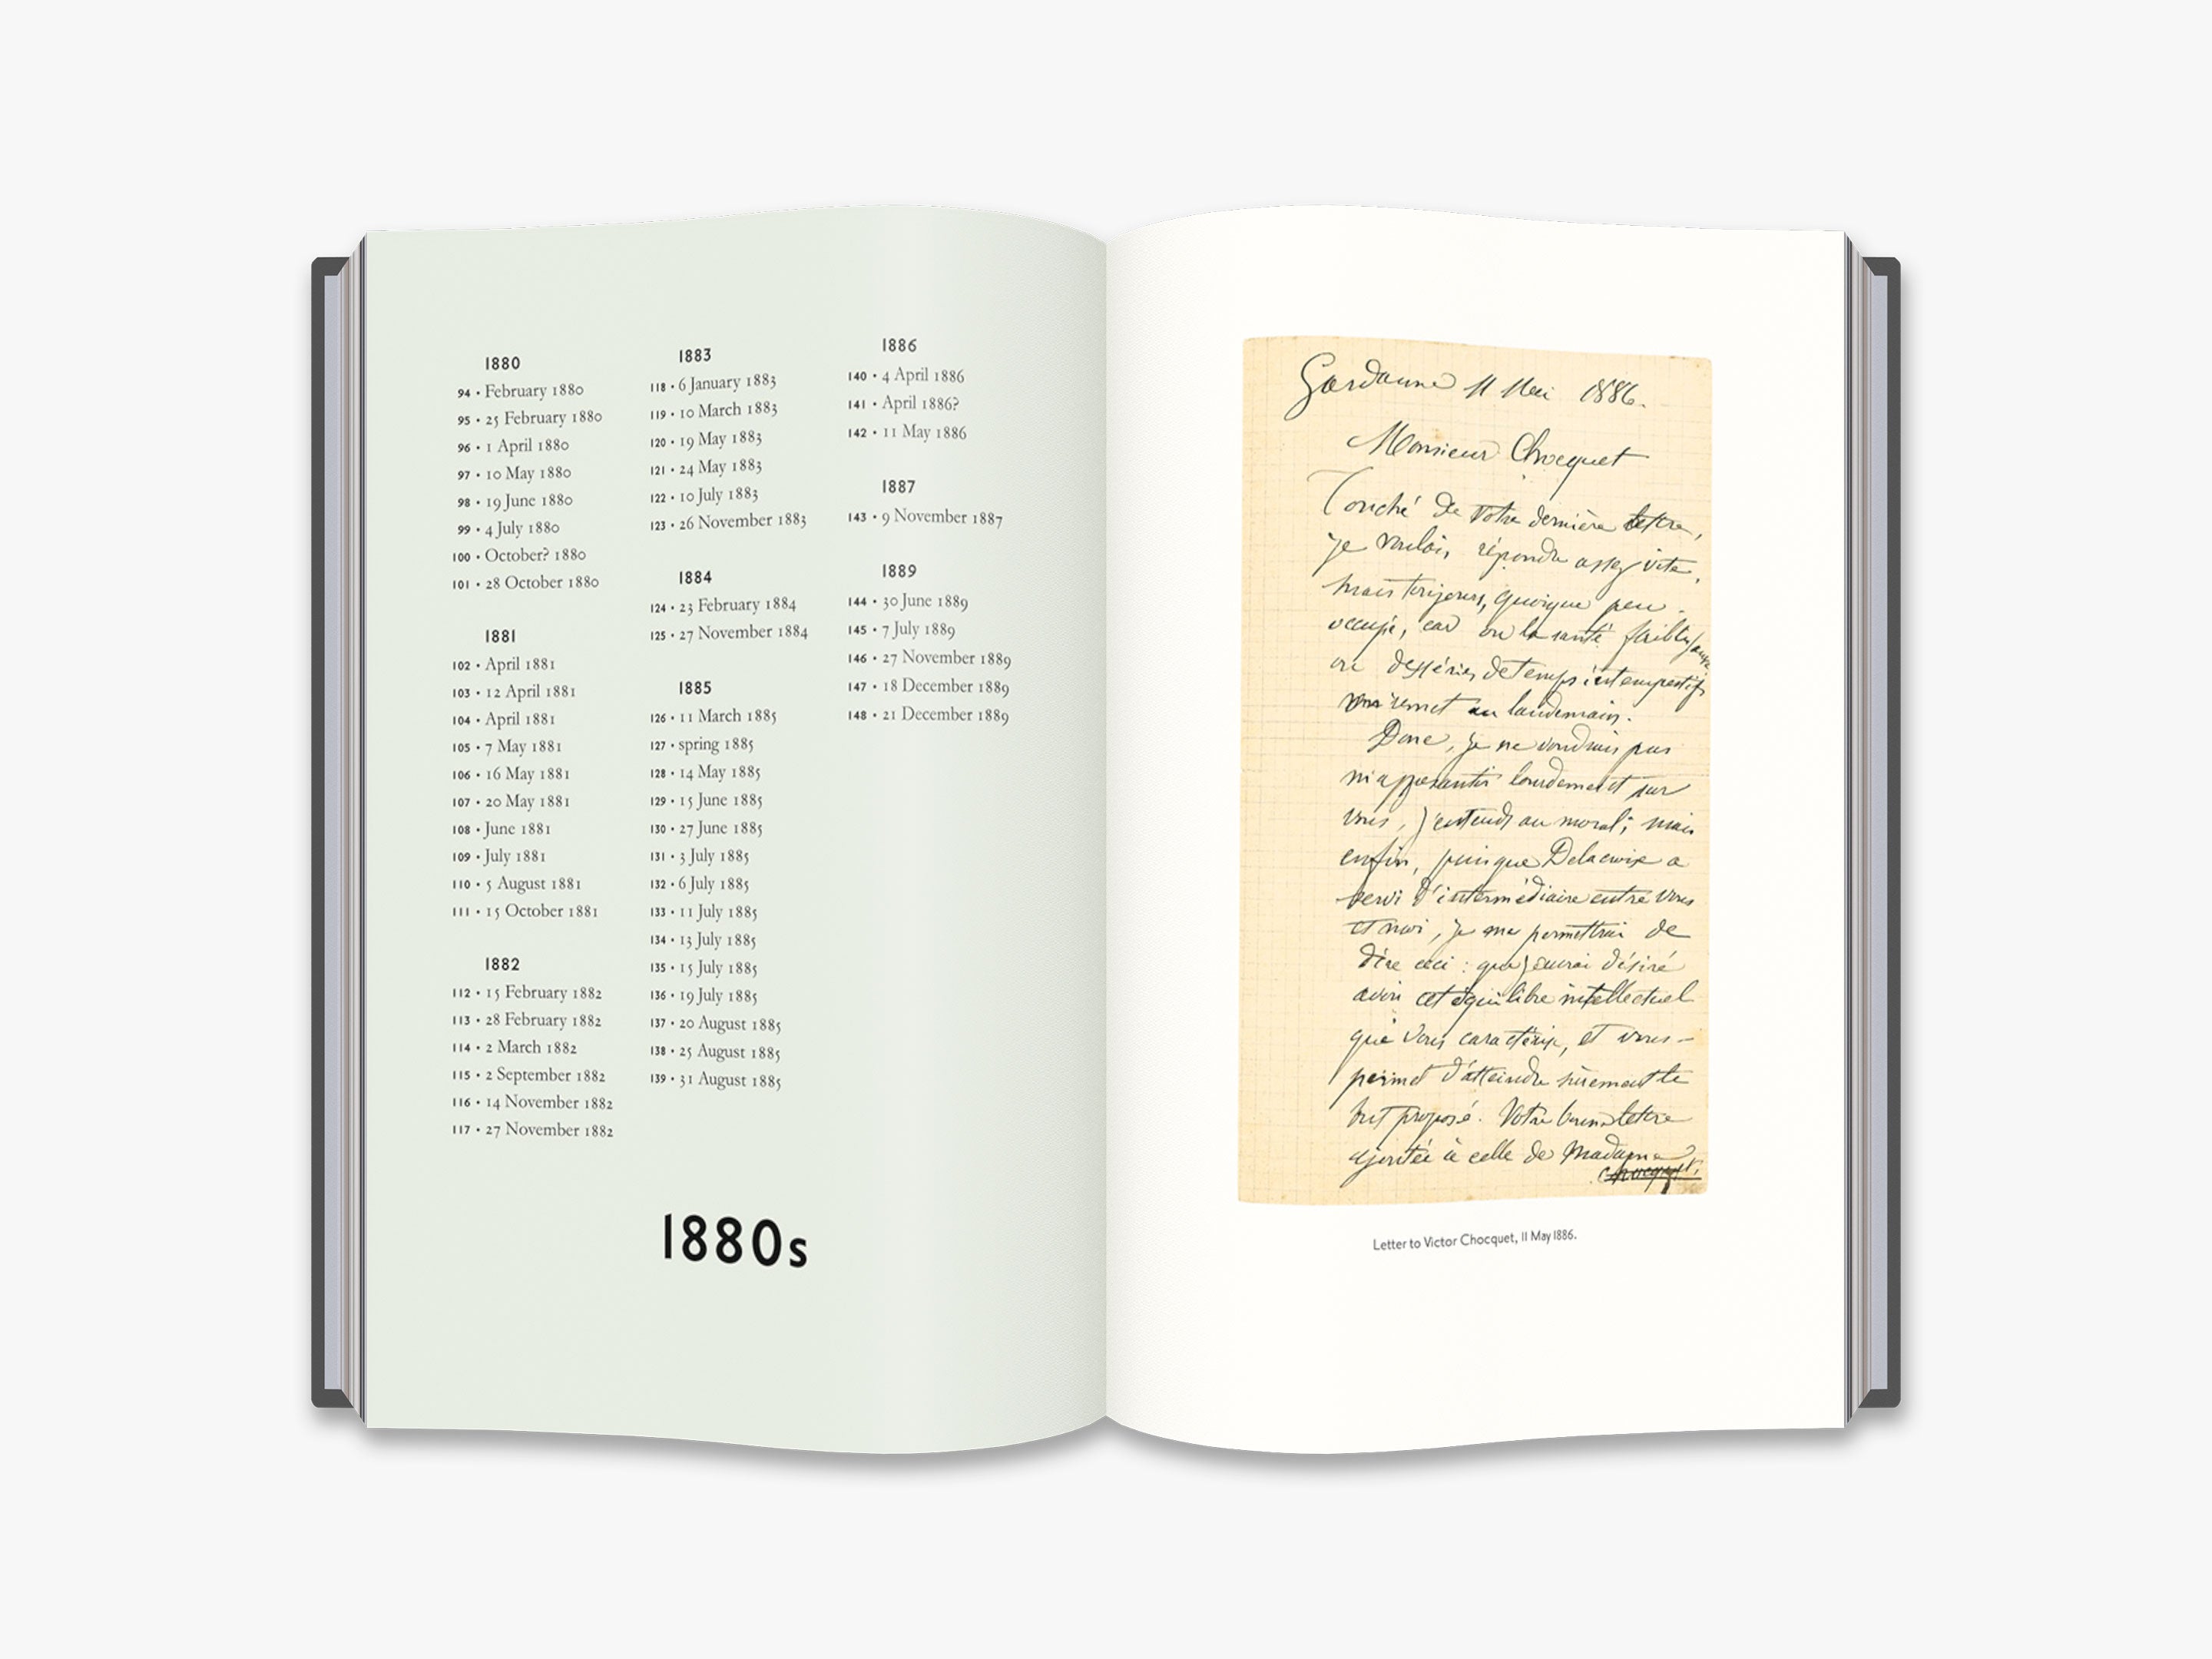 1880
94 • February 1880
95 • 25 February 1880
96 • 1 April 1880
97 • 10 May 1880
98 • 19 June 1880
99 • 4 July 1880
100 • October? 1880
101 • 28 October 1880
1881
102 • April 1881
103 • 12 April 1881
104 • April 1881
105 • 7 May 1881
106 • 16 May 1881
107 • 20 May 1881
108 • June 1881
109 • July 1881
110 • 5 August 1881
111 • 15 October 1881
1882
112 • 15 February 1882
113 • 28 February 1882
114 • 2 March 1882
115 • 2 September 1882
116 • 14 November 1882
117 • 27 November 1882
1883
118 • 6 January 1883
119 • 10 March 1883
120 • 19 May 1883
121 • 24 May 1883
122 • 10 July 1883
123 • 26 November 1883
1884
124 • 23 February 1884
125 • 27 November 1884
1885
126 • 11 March 1885
127 • spring 1885
128 • 14 May 1885
129 • 15 June 1885
130 • 27 June 1885
131 • 3 July 1885
132 • 6 July 1885
133 • 11 July 1885
134 • 13 July 1885
135 • 15 July 1885
136 • 19 July 1885
137 • 20 August 1885
138 • 25 August 1885
139 • 31 August 1885
1886
140 • 4 April 1886
141 • April 1886?
142 • 11 May 1886
1887
143 • 9 November 1887
1889
144 • 30 June 1889
145 • 7 July 1889
146 • 27 November 1889
147 • 18 December 1889
148 • 21 December 1889
1880s
Gardanne 11 Mai 1886.
Monsieur Chocquet
Touché de votre dernière lettre,
je voulais répondre assez vite,
mais toujours, quoique peu
occupé, car ou la santé faible
ou des séries de temps intempestifs
remet au lendemain.
Donc, je ne voudrais pas
m'appesantir lourdement sur
vous, j'entends au moral; mais
enfin, puisque Delacroix a
servi d'intermédiaire entre vous
et moi, je me permettrai de
dire ceci: que j'aurai désiré
avoir cet équilibre intellectuel
que vous caractérise, et vous
permet d'atteindre sûrement le
but proposé. Votre bonne lettre
ajoutée à celle de Madame
Chocquet,
Letter to Victor Chocquet, 11 May 1886.